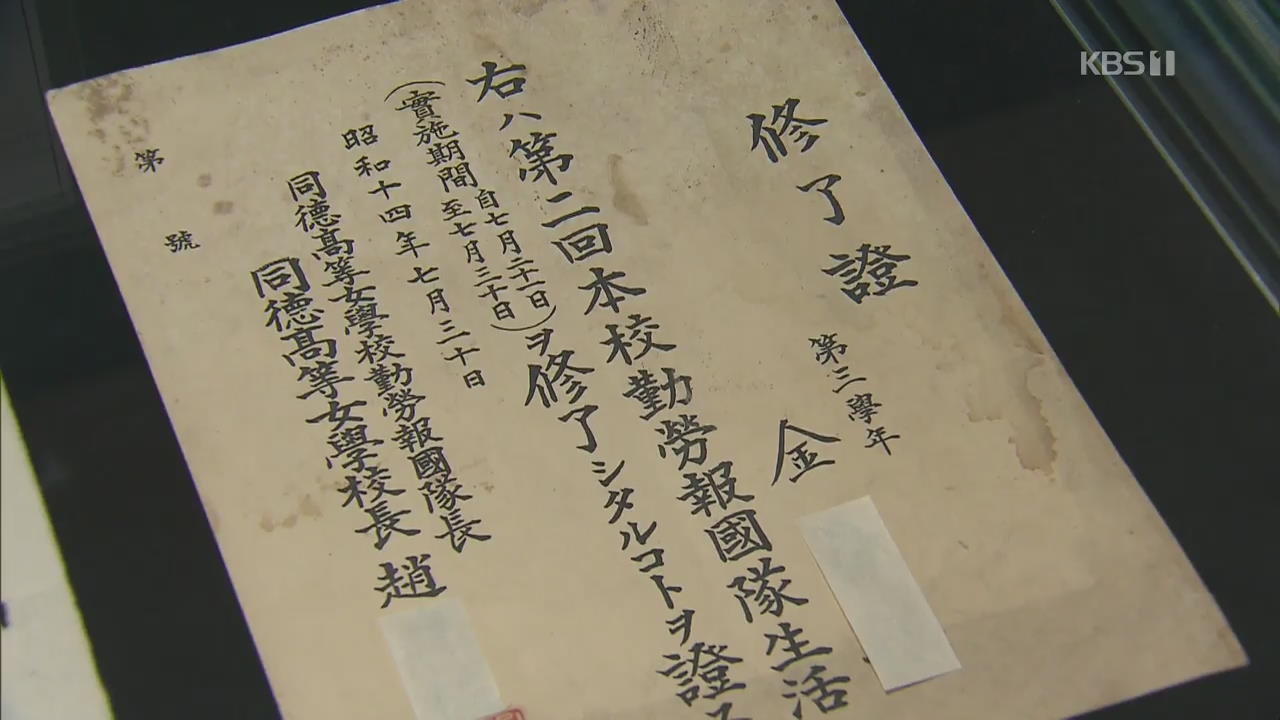 KBS1
修了證
第三學年
金
右ハ第二回本校勤勞報國隊生活
(實施期間自七月二十一日至七月三十日)ヲ修了シタルコトヲ證
昭和十四年七月三十日
同德高等女學校勤勞報國隊長
同德高等女學校長 趙
第 號